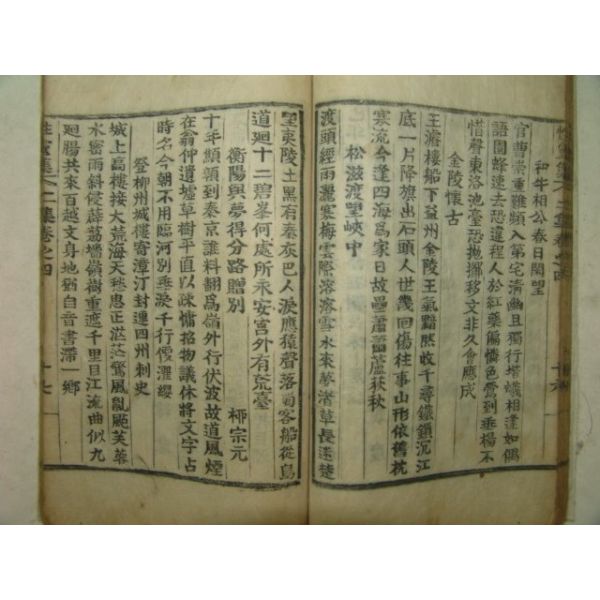 和牛相公春日閑望
官曹崇重難頻入第宅清幽且獨行堦蟻相逢如偶
語園蜂速去恐違程人於紅藥偏憐色鶯到垂楊不
惜聲東洛池臺恐抛擲移文非久會應成
金陵懷古
王濬樓船下益州金陵王氣黯然收千尋鐵鎖沉江
底一片降旗出石頭人世幾回傷往事山形依舊枕
寒流今逢四海爲家日故壘蕭蕭蘆荻秋
松滋渡望峽中
渡頭經雨灑寒梅雲際溶溶雪水來夢渚草長迷楚
望夷陵土黑有秦灰巴人淚應猿聲落蜀客船從鳥
道廻十二碧峯何處所永安宮外有荒臺
衡陽與夢得分路贈別 柳宗元
十年顦顇到秦京誰料翻爲嶺外行伏波故道風煙
在翁仲遺墟草樹平直以疎慵招物議休將文字占
時名今朝不用臨河別垂淚千行便濯纓
登柳州城樓寄漳汀封連四州刺史
城上高樓接大荒海天愁思正茫茫驚風亂颭芙蓉
水密雨斜侵薜荔墻嶺樹重遮千里目江流曲似九
廻腸共來百越文身地猶自音書滯一鄉
二集卷之四 十七